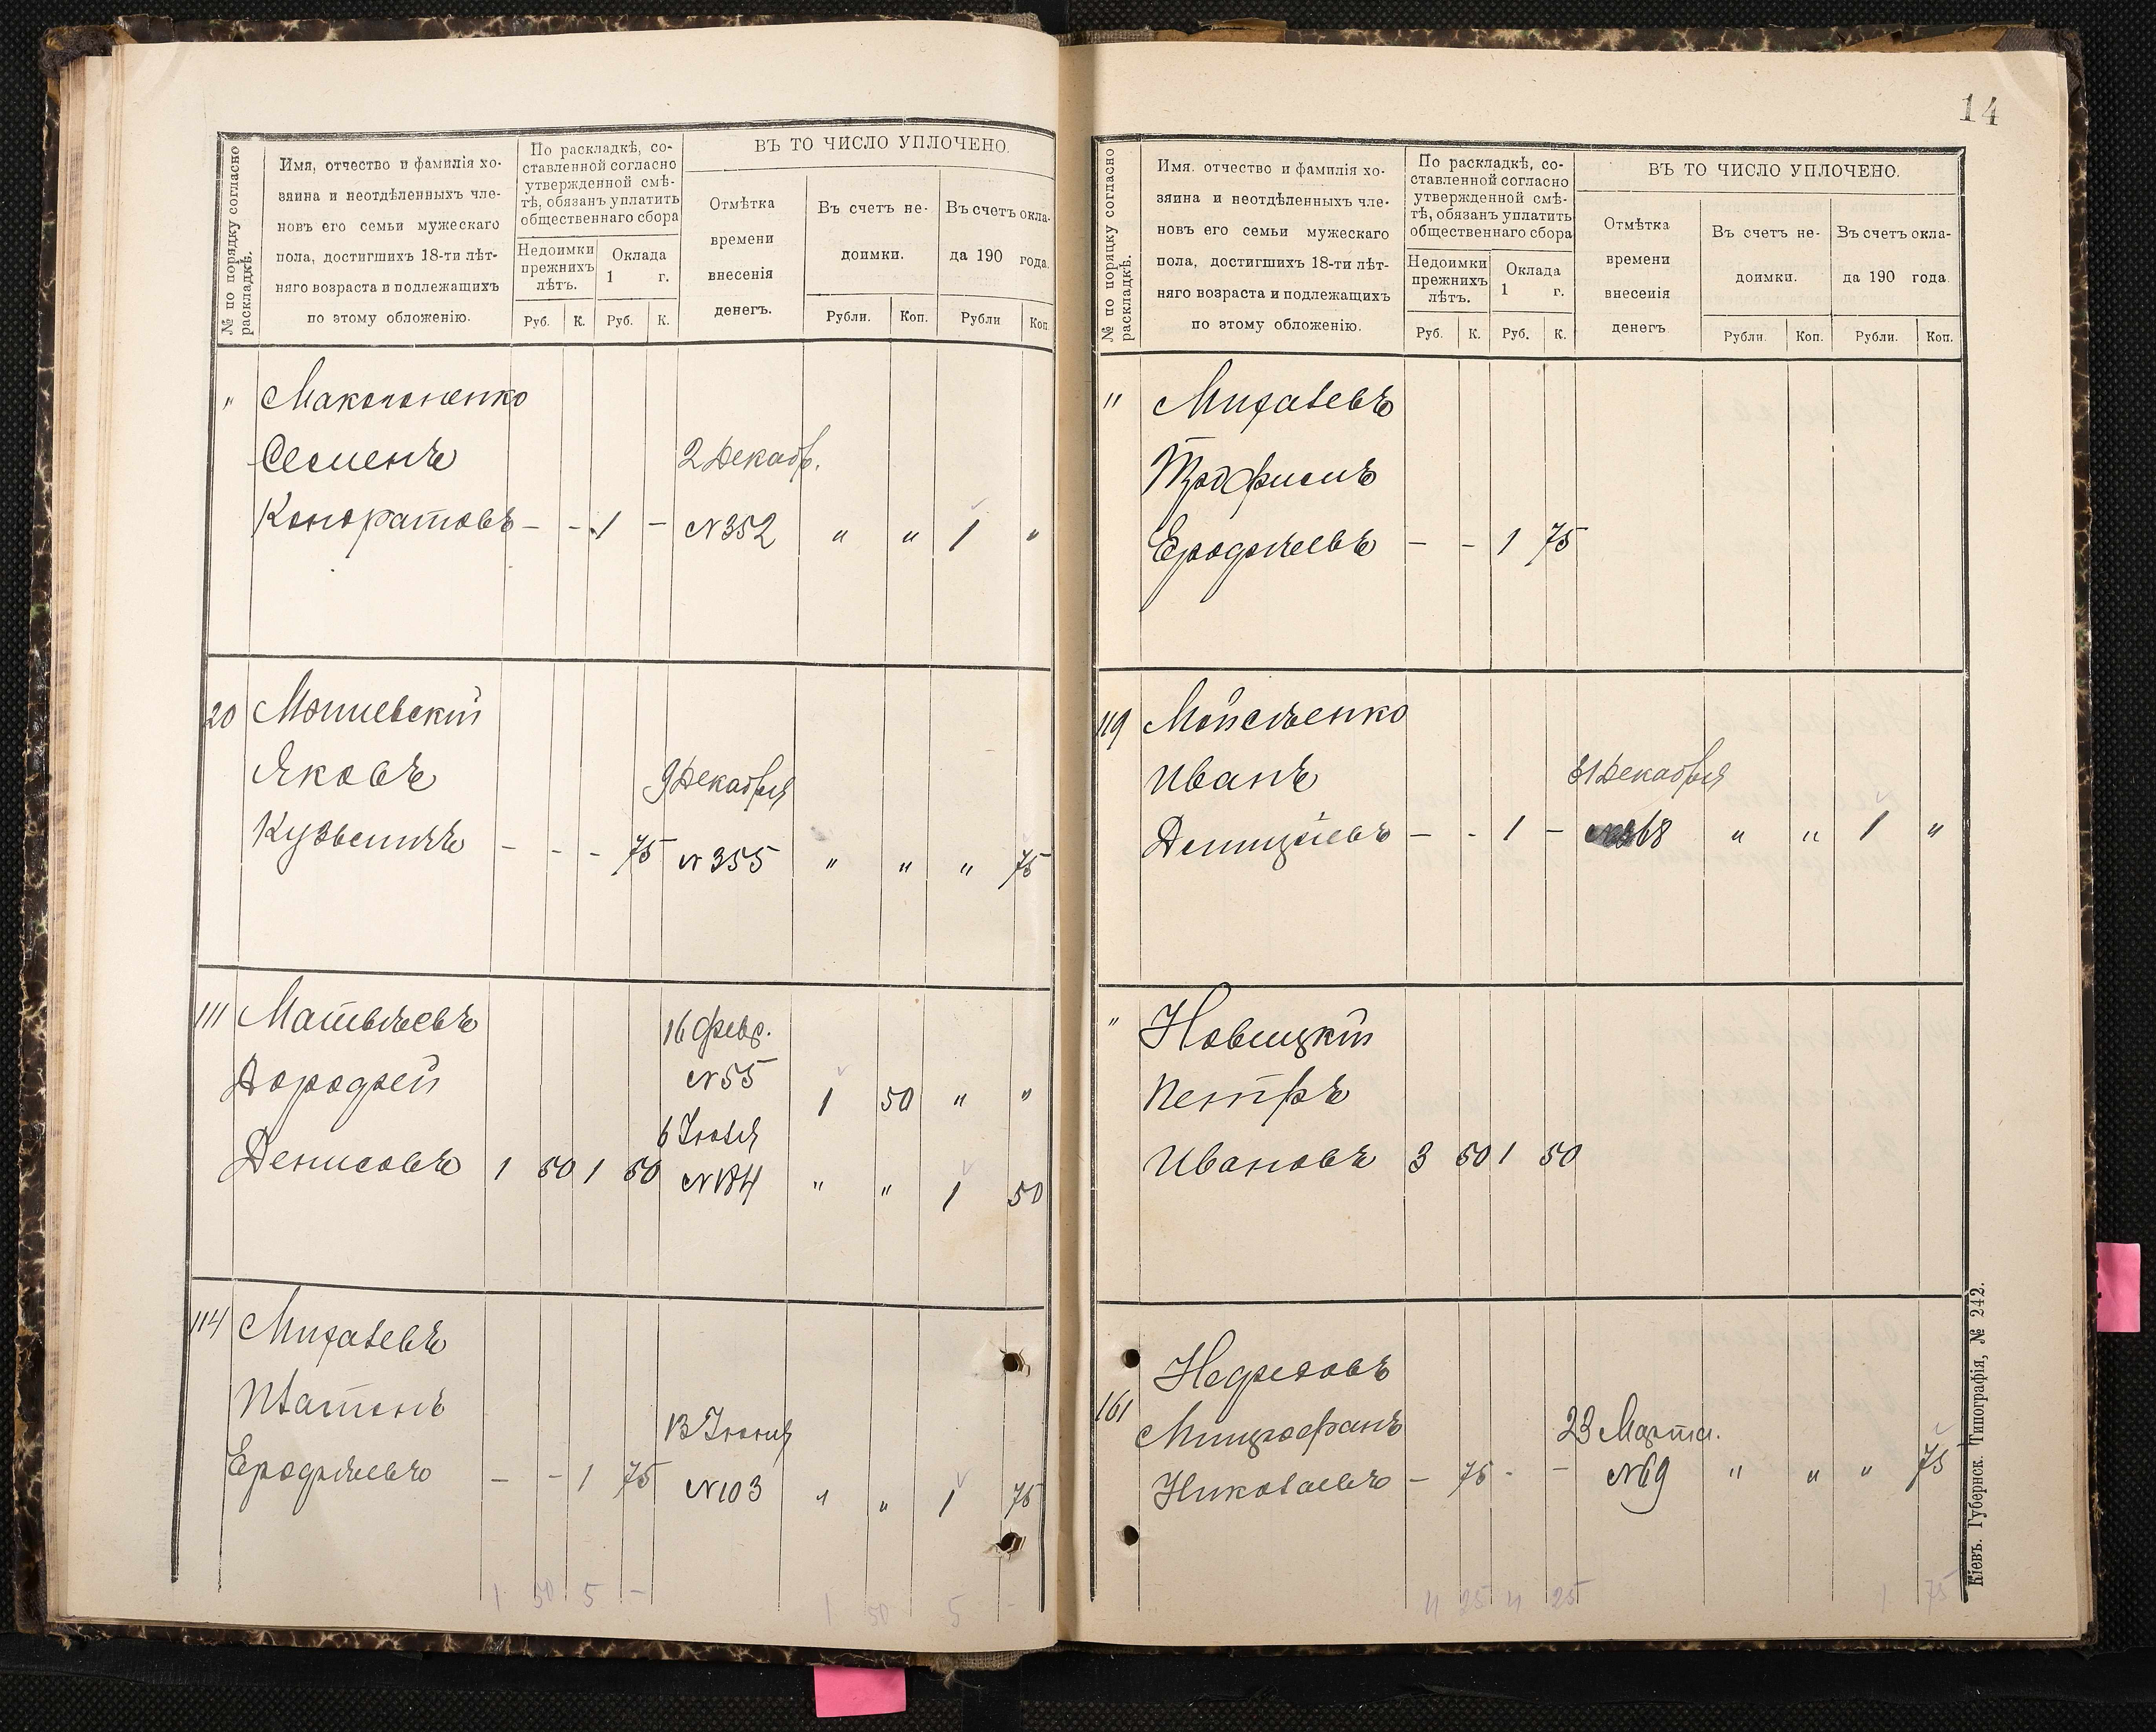 № по порядку согласно
раскладкѣ.
Имя, отчество и фамилія хо-
зяина и неотдѣленныхъ чле-
новъ его семьи мужескаго
пола, достигшихъ 18-ти лѣт-
няго возраста и подлежащихъ
по этому обложенію.
По раскладкѣ, со-
ставленной согласно
утвержденной смѣ-
тѣ, обязанъ уплатить
общественнаго сбора
Недоимки
прежнихъ
лѣтъ.
Оклада
1 г.
Руб. К. Руб. К.
ВЪ ТО ЧИСЛО УПЛОЧЕНО.
Отмѣтка
времени
внесенія
денегъ.
Въ счетъ не-
доимки.
Въ счетъ окла-
да 190 года.
Рубли. Коп. Рубли Коп.
" Макопоненко
Семенъ
2 Декабр.
Кондратовъ - - 1 - N 352 " " 1 "
20 Мошевскій
Яковъ
9 Декабря
Кузьмичъ - - - 75 N 355 " " " 75
111 Матвѣевъ
16 февр.
Дорофей
N 55 1 50 " "
6 Іюля
Денисовъ 1 50 1 50 N 184 " " 1 50
114 Михалевъ
Платонъ
13 Іюня
Ерофѣевъ - - 1 75 N 103 " " 1 75
1 50 5 - 1 50 5 -
14
№ по порядку согласно
раскладкѣ.
Имя, отчество и фамилія хо-
зяина и неотдѣленныхъ чле-
новъ его семьи мужескаго
пола, достигшихъ 18-ти лѣт-
няго возраста и подлежащихъ
по этому обложенію.
По раскладкѣ, со-
ставленной согласно
утвержденной смѣ-
тѣ, обязанъ уплатить
общественнаго сбора
Недоимки
прежнихъ
лѣтъ.
Оклада
1 г.
Руб. К. Руб. К.
ВЪ ТО ЧИСЛО УПЛОЧЕНО.
Отмѣтка
времени
внесенія
денегъ
Въ счетъ не-
доимки.
Въ счетъ окла-
да 190 года.
Рубли. Коп. Рубли. Коп.
" Михалевъ
Трофимъ
Ерофѣевъ - - 1 75
119 Мойсѣенко
Иванъ
31 Декабря
- - 1 - 368 " " 1 "
" Новицкій
Петръ
Ивановъ 3 50 1 50
Нефедовъ
161 Митрофанъ
23 Марта.
Николаевъ - 75 - - N 69 " " " 75
4 25 4 25 1 75
Кіевъ. Губернск. Типографія, № 242.